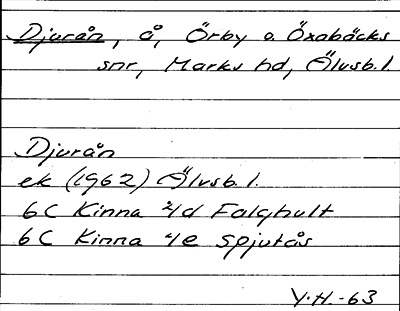 Djurån, å, Örby o. Öxabäcks
snr, Marks hd, Älvsb. l.
Djurån
ek (1962) Älvsb. l.
6C Kinna 2/d Falghult
6C Kinna 4/e Spjutås
Y.H.-63